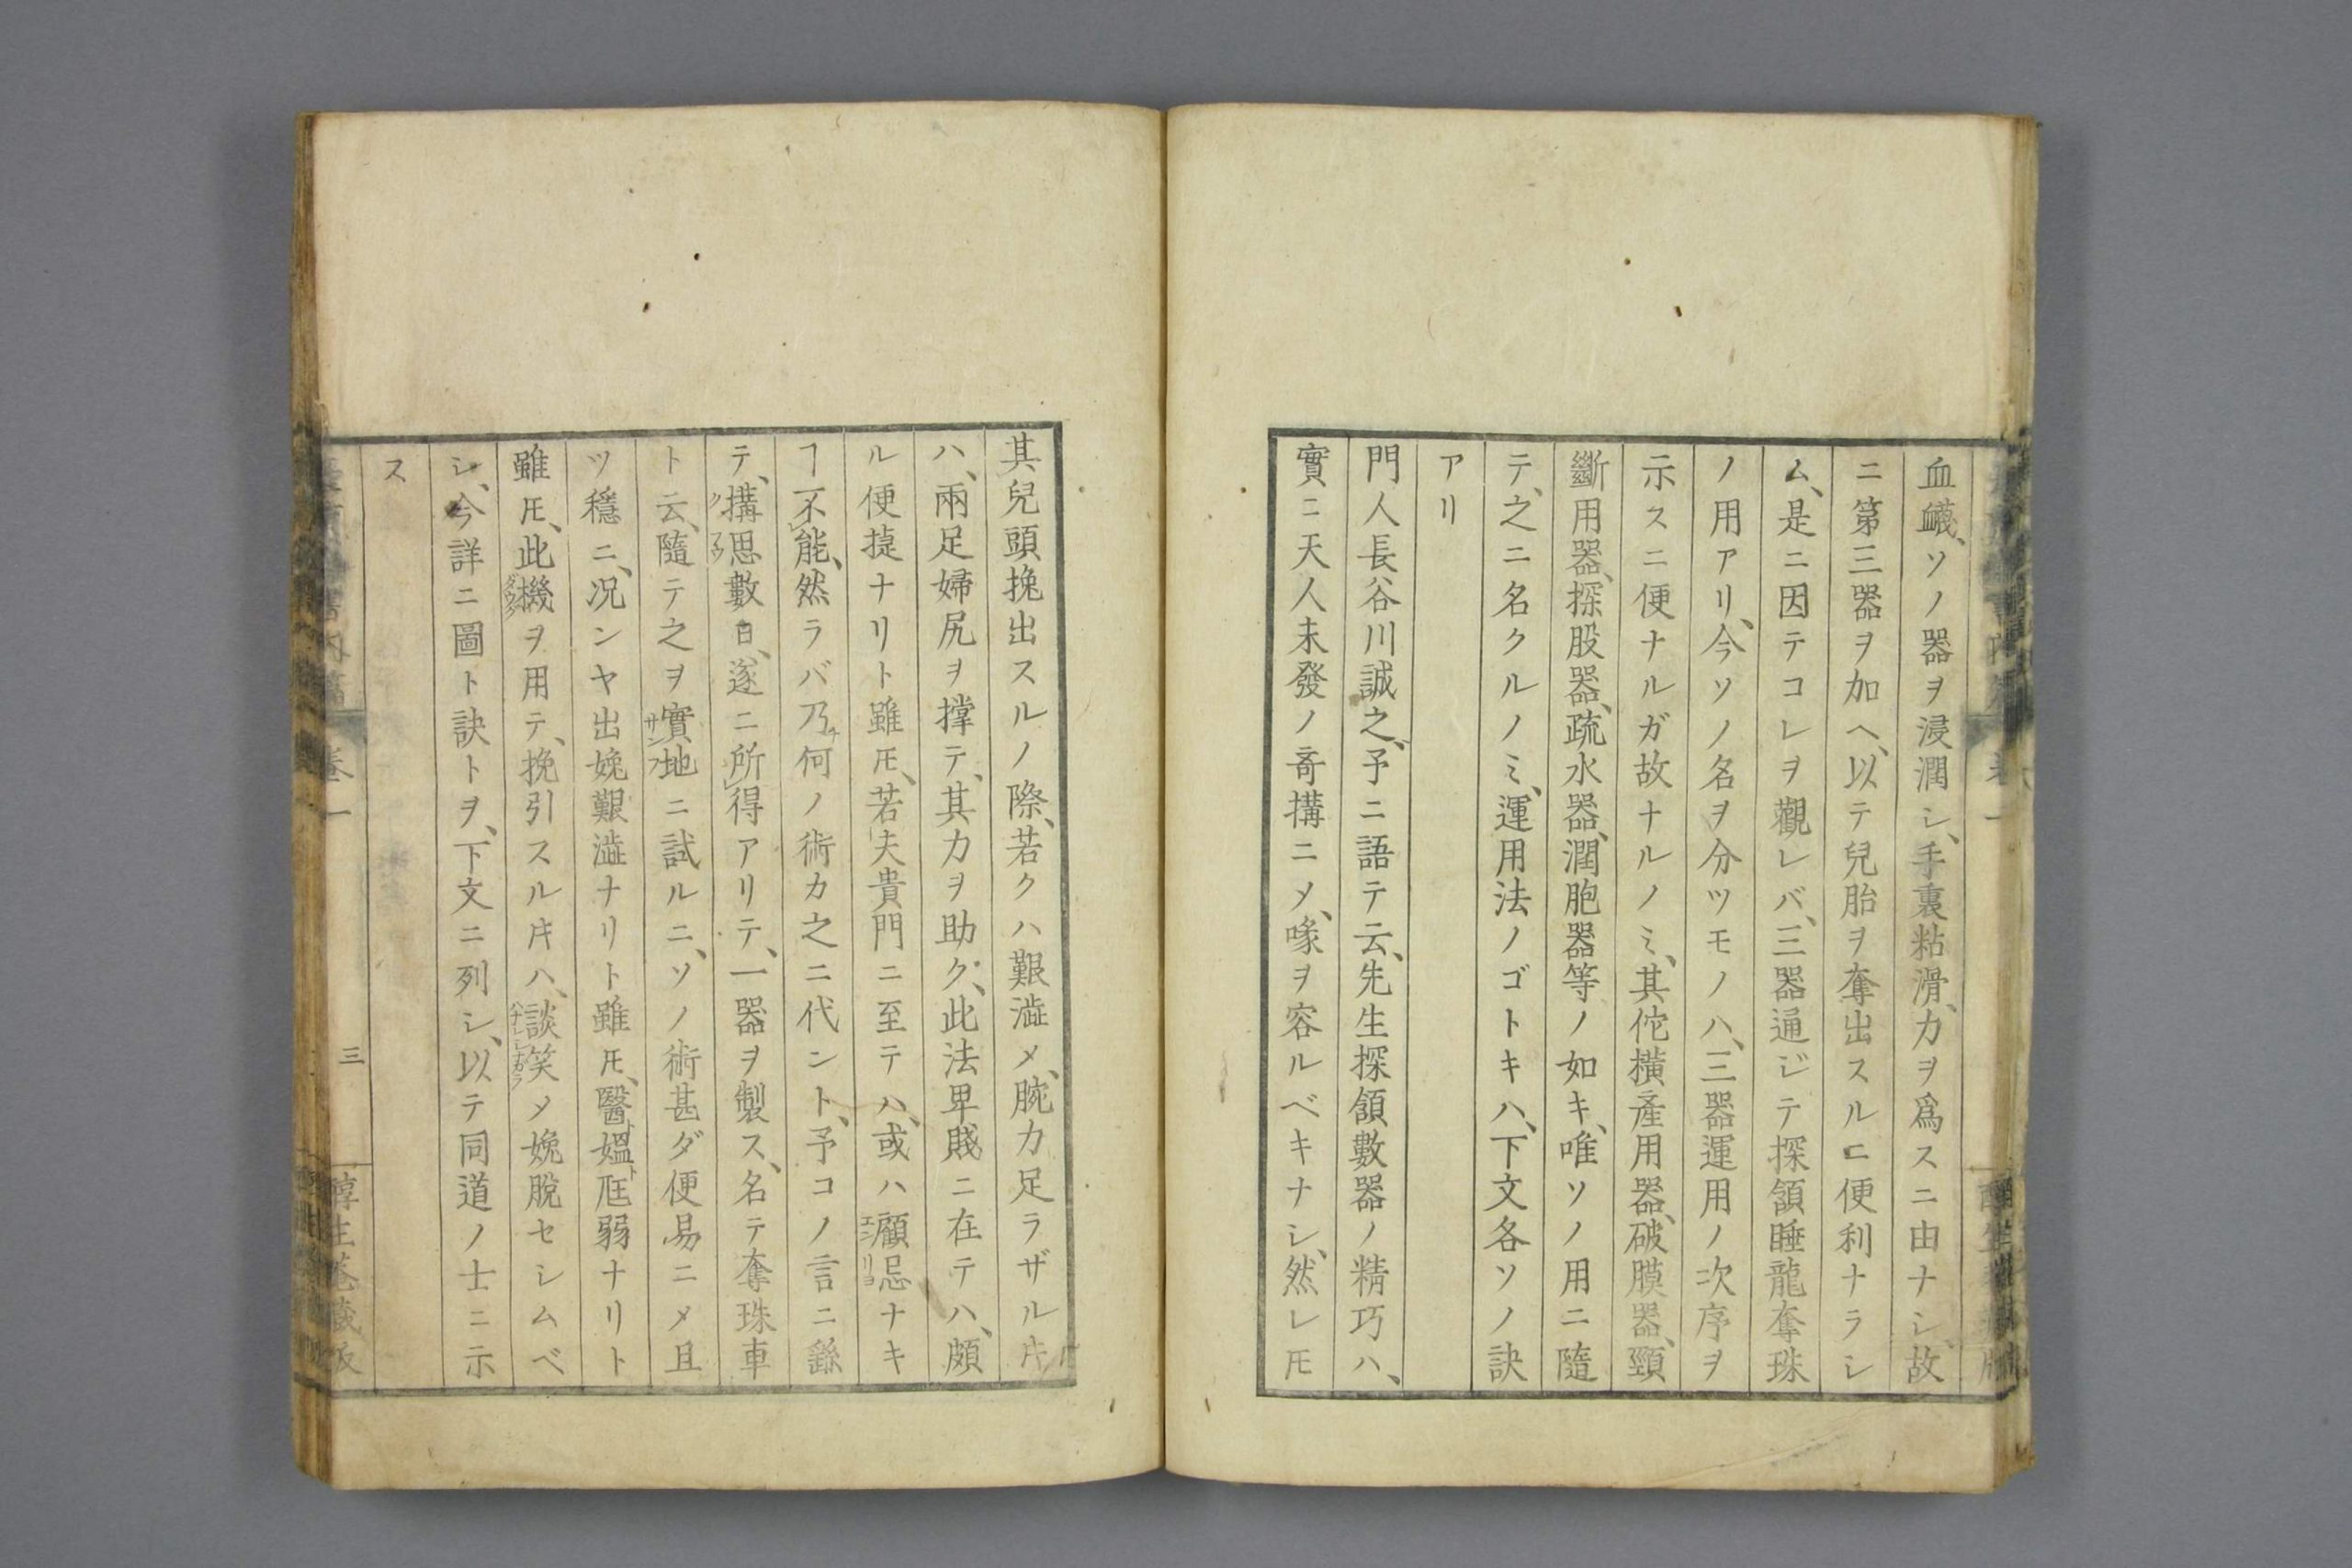 血衊、ソノ器ヲ浸潤シ、手裏粘滑、力ヲ爲スニ由ナシ、故
ニ第三器ヲ加ヘ、以テ兒胎ヲ奪出スルニ便利ナラシ
ム、是ニ因テコレヲ觀レバ、三器通ジテ探頷睡龍奪珠
ノ用アリ、今ソノ名ヲ分ツモノハ、三器運用ノ次序ヲ
示スニ便ナルガ故ナルノミ、其佗橫產用器、破膜器、頸
斷用器、探股器、疏水器、潤胞器等ノ如キ、唯ソノ用ニ隨
テ、之ニ名クルノミ、運用法ノゴトキハ、下文各ソノ訣
アリ
門人長谷川誠之、予ニ語テ云、先生探頷數器ノ精巧ハ、
實ニ天人未發ノ奇搆ニメ、喙ヲ容ルベキナシ、然レ𪜈
其兒頭挽出スルノ際、若クハ艱澁メ、腕力足ラザル𪜈
ハ、兩足婦尻ヲ撑テ、其力ヲ助ク、此法卑賤ニ在テハ、頗
ル便捷ナリト雖𪜈、若夫貴門ニ至テハ、或ハ顧忌ナキ
ヿ不能、然ラバ乃何ノ術カ之ニ代ント、予コノ言ニ繇
テ、搆思數日、遂ニ所得アリテ、一器ヲ製ス、名テ奪珠車
ト云、隨テ之ヲ實地ニ試ルニ、ソノ術甚ダ便易ニメ且
ツ穩ニ、况ンヤ出娩艱澁ナリト雖𪜈、醫媼尫弱ナリト
雖𪜈、此機ヲ用テ、挽引スル𪜈ハ、談笑メ娩脫セシムベ
シ、今詳ニ圖ト訣トヲ、下文ニ列シ、以テ同道ノ士ニ示
ス
卷一
三